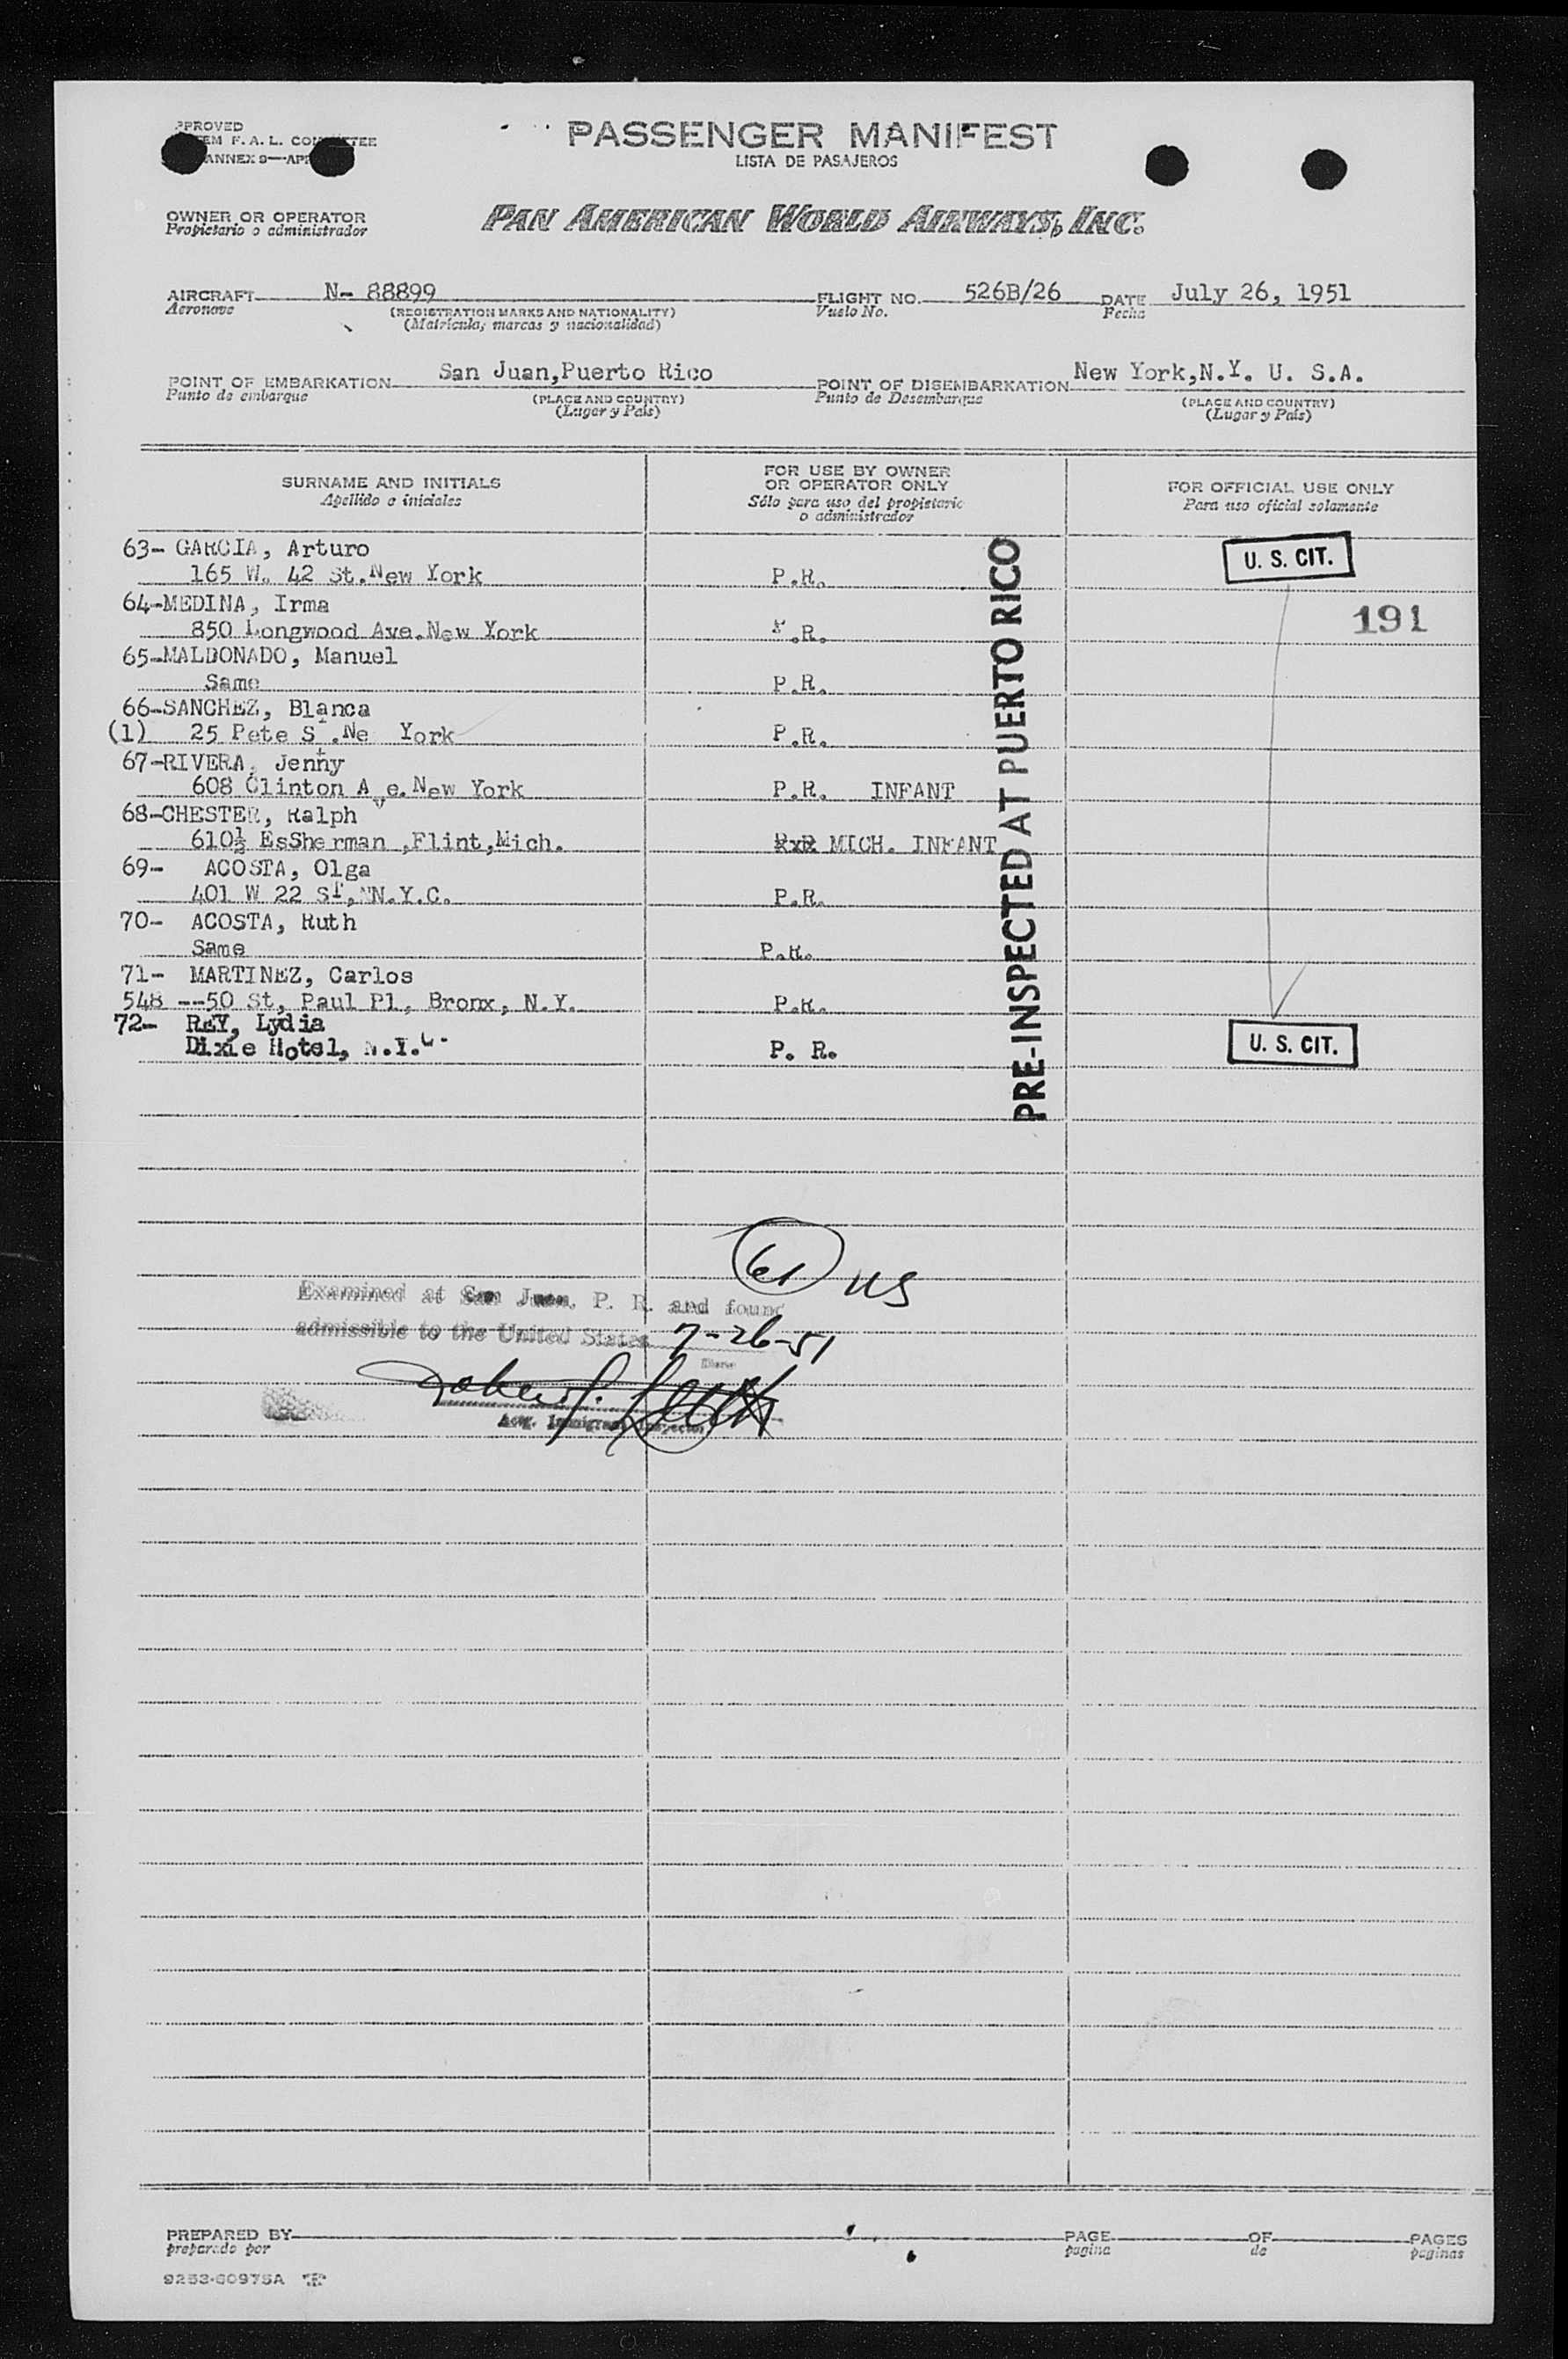 PASSENGER MANIFEST
LISTA DE PASAJEROS
OWNER OR OPERATOR
Propietario o administrador
PAN AMERICAN WORLD AIRWAYS, INC.
AIRCRAFT N- 88899 FLIGHT NO. 526B/26 DATE July 26, 1951
Aeronave (REGISTRATION MARKS AND NATIONALITY) Vuelo No. Fecha
(Matrícula, marcas y nacionalidad)
POINT OF EMBARKATION San Juan,Puerto Rico POINT OF DISEMBARKATION New York,N.Y. U. S.A.
Punto de embarque (PLACE AND COUNTRY) Punto de Desembarque (PLACE AND COUNTRY)
(Lugar y País) (Lugar y País)
SURNAME AND INITIALS FOR USE BY OWNER OR OPERATOR ONLY FOR OFFICIAL USE ONLY
Apellido e iniciales Sólo para uso del propietario o administrador Para uso oficial solamente
63- GARCIA, Arturo U. S. CIT.
165 W. 42 St.New York P.R.
64-MEDINA, Irma 191
850 Longwood Ave.New York P.R.
65-MALDONADO, Manuel
Same P.R.
66-SANCHEZ, Blanca
(1) 25 Pete St.Ne York P.R.
67-RIVERA, Jenny
608 Clinton Ave.New York P.R. INFANT
68-CHESTER, Ralph
610½ EsSherman ,Flint,Mich. RxR MICH. INFANT
69- ACOSTA, Olga
401 W 22 St, N.Y.C. P.R.
70- ACOSTA, Ruth
Same P.R.
71- MARTINEZ, Carlos
548 --50 St, Paul Pl, Bronx, N.Y. P.R.
72- REY, Lydia
Dixie Hotel, N.Y.C. P. R. U. S. CIT.
PRE-INSPECTED AT PUERTO RICO
61 US
Examined at San Juan, P. R. and found
admissible to the United States 7-26-51
PREPARED BY PAGE OF PAGES
preparado por pagina de paginas
9253-60975A